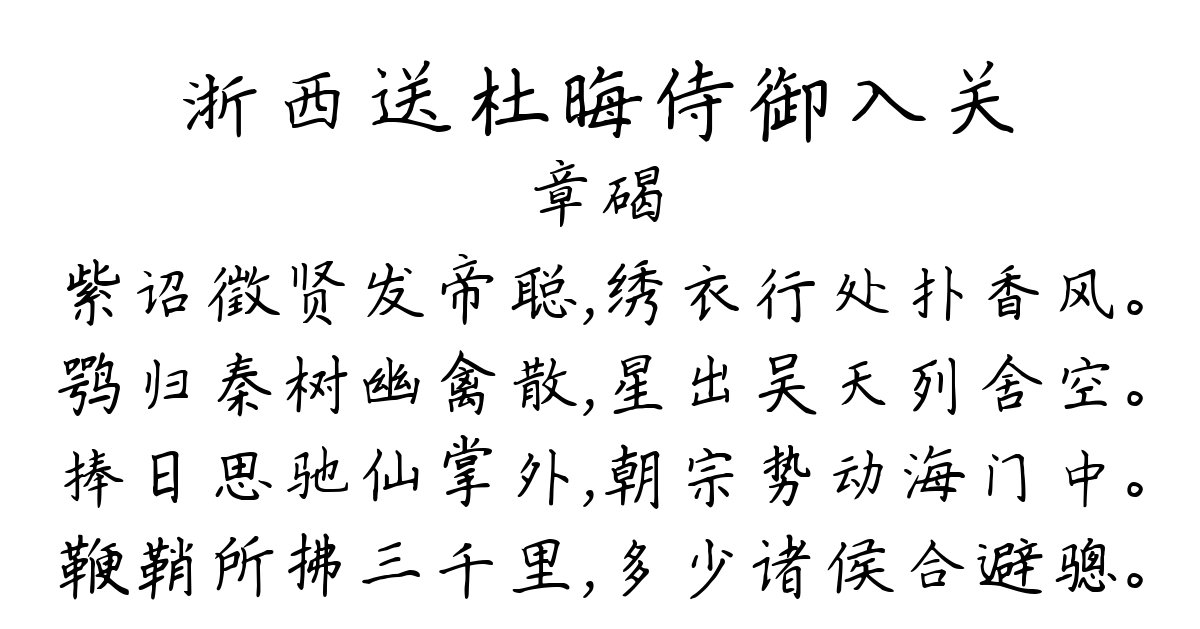 浙西送杜晦侍御入关
章碣
紫诏徵贤发帝聪,绣衣行处扑香风。
鹗归秦树幽禽散,星出吴天列舍空。
捧日思驰仙掌外,朝宗势动海门中。
鞭鞘所拂三千里,多少诸侯合避骢。